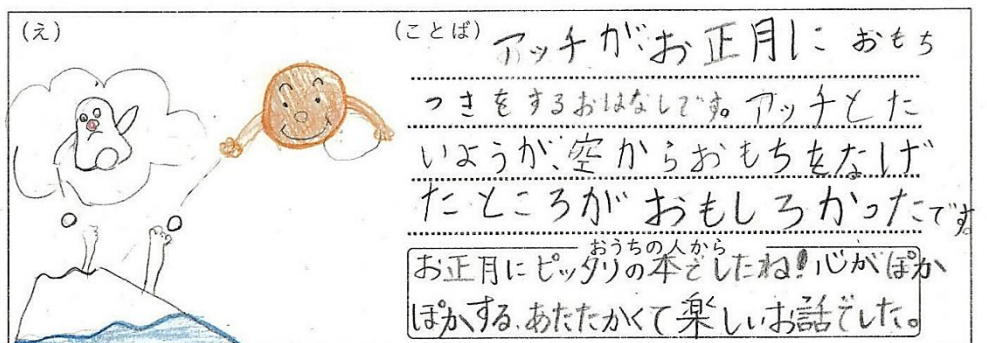 (え)
(ことば)
アッチがお正月に おもち
つきをするおはなしです。アッチとた
いようが、空からおもちをなげ
たところがおもしろかったです。
おうちの人から
お正月にピッタリの本でしたね!心がぽか
ぽかする、あたたかくて楽しいお話でした。